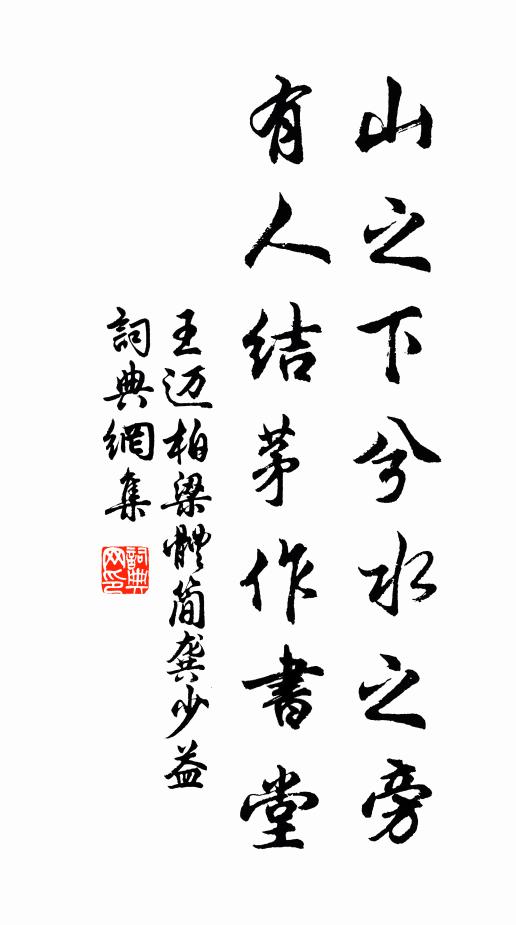 山之下兮水之旁
有人结茅作書堂
王迈柏梁體简龚少益
詞典網集
詞典网印